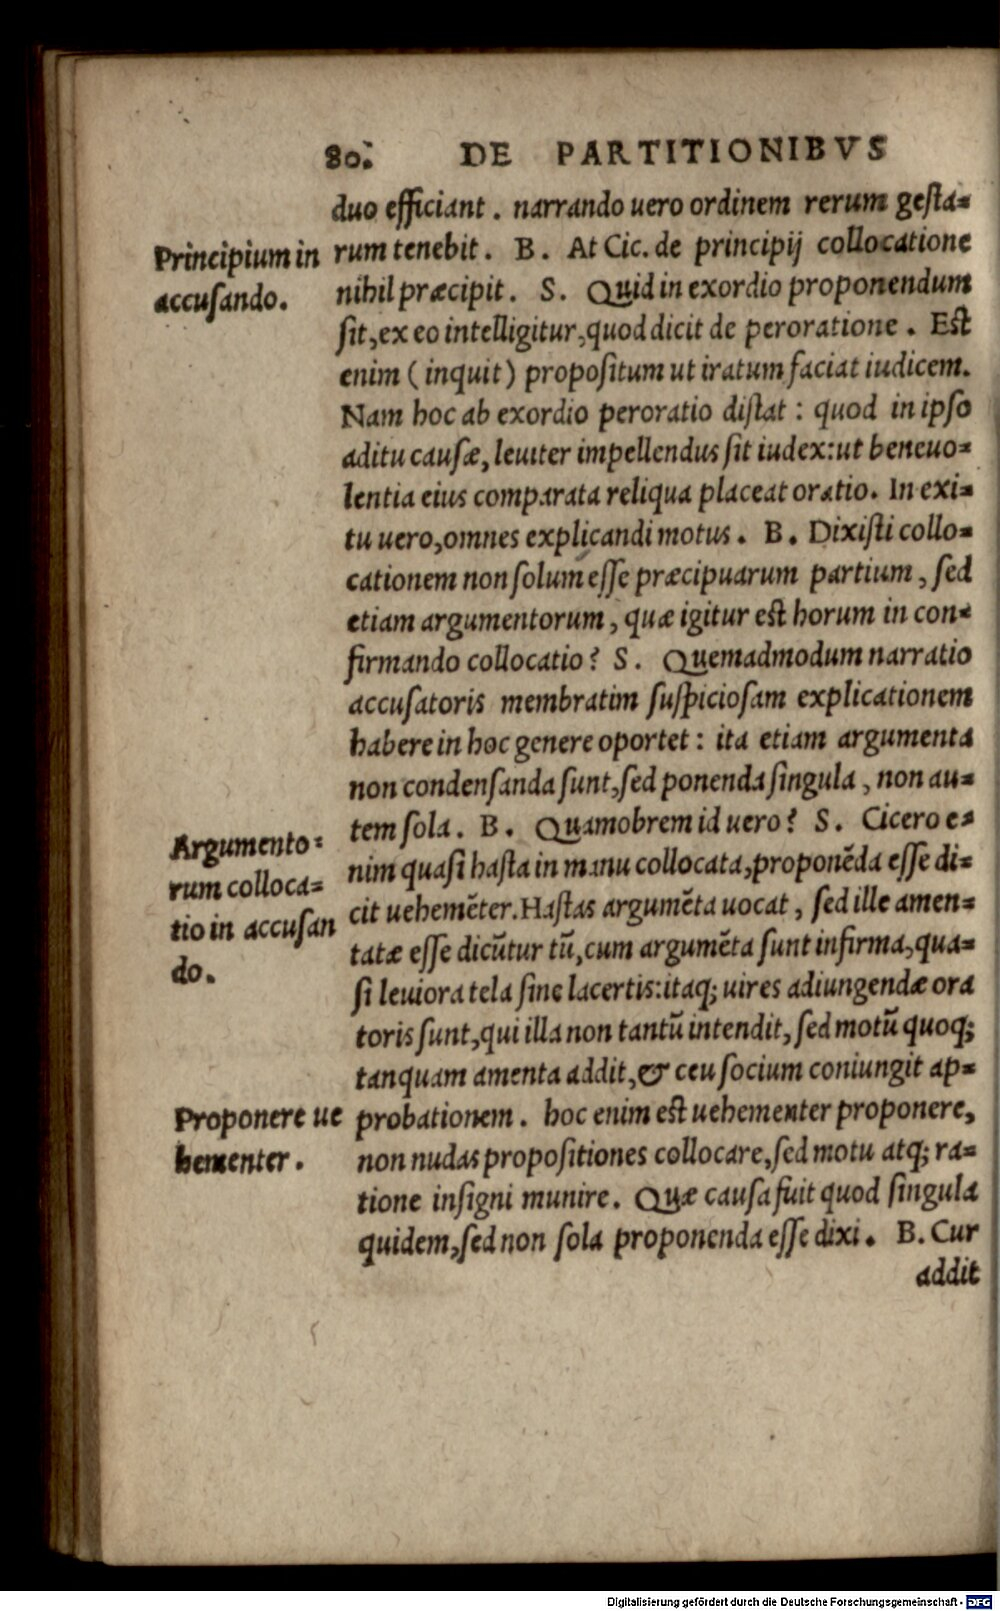 80. DE PARTITIONIBVS
duo efficiant. narrando uero ordinem rerum gesta=
Principium in
accusando.
rum tenebit. B. At Cic. de principij collocatione
nihil præcipit. S. Quid in exordio proponendum
sit, ex eo intelligitur, quod dicit de peroratione. Est
enim (inquit) propositum ut iratum faciat iudicem.
Nam hoc ab exordio peroratio distat: quod in ipso
aditu causæ, leuiter impellendus sit iudex: ut beneuo=
lentia eius comparata reliqua placeat oratio. In exi=
tu uero, omnes explicandi motus. B. Dixisti collo=
cationem non solum esse præcipuarum partium, sed
etiam argumentorum, quæ igitur est horum in con=
firmando collocatio? S. Quemadmodum narratio
accusatoris membratim suspiciosam explicationem
habere in hoc genere oportet: ita etiam argumenta
non condensanda sunt, sed ponenda singula, non au=
tem sola. B. Quamobrem id uero? S. Cicero e=
Argumento=
rum colloca=
tio in accusan
do.
nim quasi hasta in manu collocata, proponēda esse di=
cit uehemēter. Hastas argumēta uocat, sed ille amen=
tatæ esse dicūtur tū, cum argumēta sunt infirma, qua=
si leuiora tela sine lacertis: itaq; uires adiungendæ ora
toris sunt, qui illa non tantū intendit, sed motū quoq;
tanquam amenta addit, & ceu socium coniungit ap=
Proponere ue
hementer.
probationem. hoc enim est uehementer proponere,
non nudas propositiones collocare, sed motu atq; ra=
tione insigni munire. Quæ causa fuit quod singula
quidem, sed non sola proponenda esse dixi. B. Cur
addit
Digitalisierung gefördert durch die Deutsche Forschungsgemeinschaft - DFG